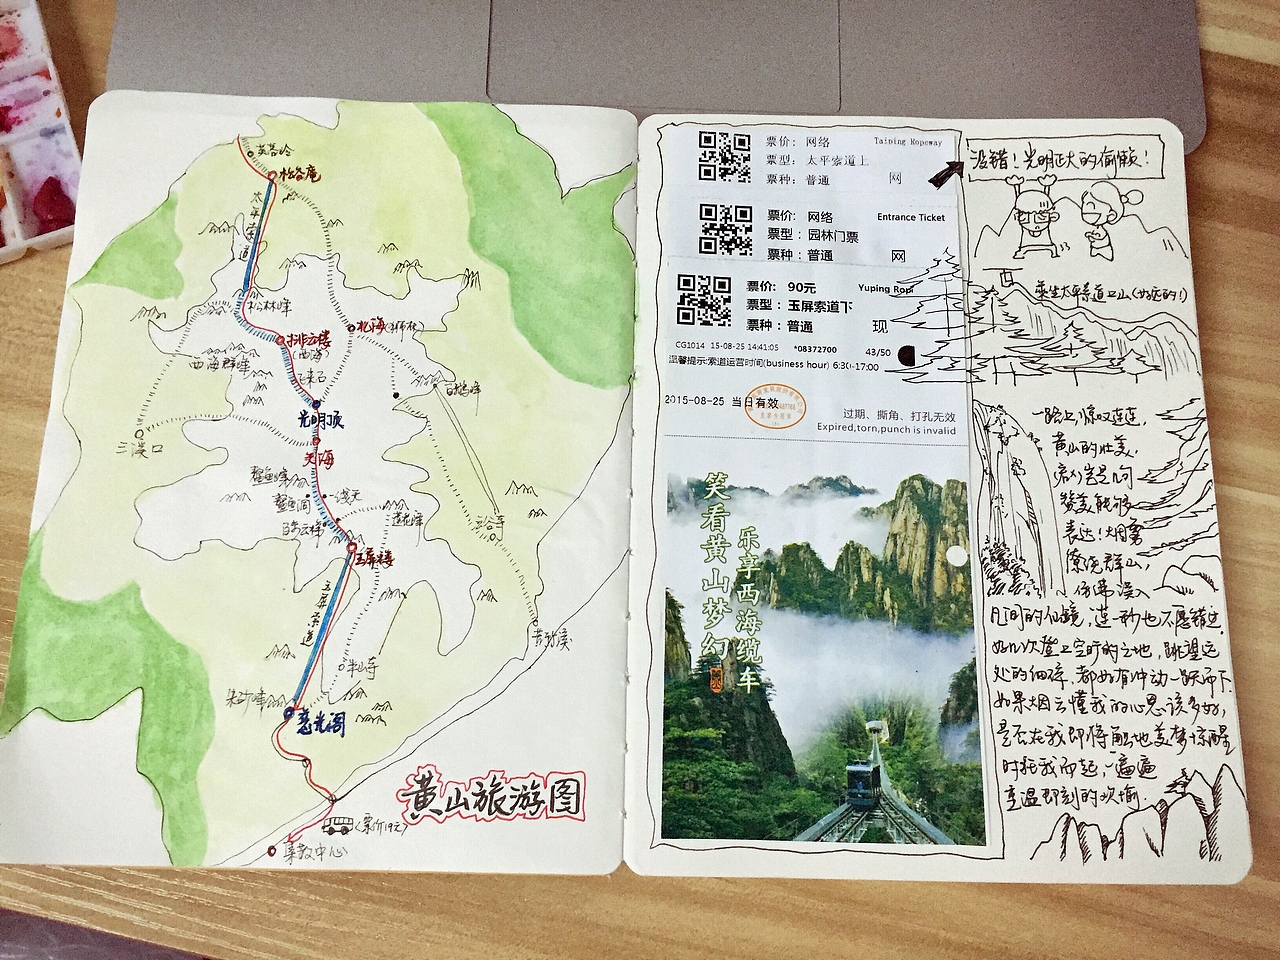 芙蓉岭
松谷庵
太平索道
松林峰
排云楼
(西海)
北海(狮林)
西海群峰
飞来石
白鹅峰
光明顶
三溪口
天海
鳌鱼峰
一线天
鳌鱼洞
莲花峰
百步云梯
云谷寺
玉屏楼
玉屏索道
苦竹溪
半山寺
朱砂峰
慈光阁
黄山旅游图
(票价19元)
集散中心
票价: 网络
Taiping Ropeway
票型: 太平索道上
票种: 普通
网
票价: 网络
Entrance Ticket
票型: 园林门票
票种: 普通
网
票价: 90元
Yuping Rop
票型: 玉屏索道下
票种: 普通
现
CG1014 15-08-25 14:41:05 *08372700 43/50
温馨提示:索道运营时间(business hour) 6:30-17:00
2015-08-25 当日有效
过期、撕角、打孔无效
Expired,torn,punch is invalid
笑看黄山梦幻
乐享西海缆车
没错!光明正大的偷懒!
乘坐太平索道上山(如征的!)
一路上,惊叹连连,
黄山的壮美,
岂是几句
赞美能够
表达!烟雾
缭绕群山,
仿佛误入
凡间的仙境,连一秒也不愿错过.
好几次登上空旷的之地,眺望远
处的细痕,都好有冲动一跃而下.
如果烟云懂我的心思该多好,
是否在我即将触地美梦惊醒
时托我而起,一遍遍
重温即刻的欢愉